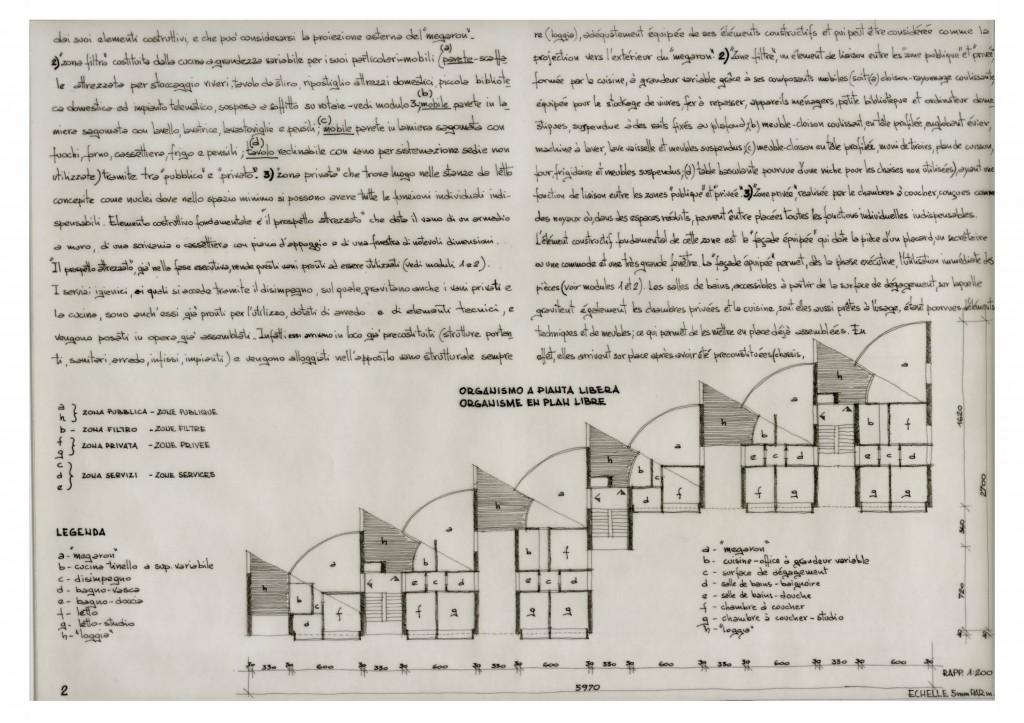 dai suoi elementi costruttivi, e che può considerarsi la proiezione esterna del "megaron".
2) "zona filtro" costituita dalla cucina a grandezza variabile per i suoi particolari-mobili (parete-scaffa (a)
le attrezzata per stoccaggio viveri, tavolo da stiro, ripostiglio attrezzi domestici, piccola bibliote
ca domestica ed impianto telematico, sospesa a soffitto su rotaie - vedi modulo 3; mobile parete in la (b)
miera sagomata con lavello, lavatrice, lavastoviglie e pensili; mobile parete in lamiera sagomata con (c)
fuochi, forno, cassettiera, frigo e pensili; tavolo reclinabile con vano per sistemazione sedie non (d)
utilizzate) tramite tra "pubblico" e "privato". 3) "zona privata" che trova luogo nelle stanze da letto
concepite come nuclei dove nello spazio minimo si possono avere tutte le funzioni individuali indi-
spensabili. Elemento costruttivo fondamentale è "il prospetto attrezzato" che dota il vano di un armadio
a muro, di una scrivania o cassettiera con piano d'appoggio e di una finestra di notevoli dimensioni.
"Il progetto attrezzato", già nella fase esecutiva, rende questi vani pronti ad essere utilizzati (vedi moduli 1 e 2).
I servizi igienici, ai quali si accede tramite il disimpegno, sul quale gravitano anche i vani privati e
la cucina, sono anch'essi già pronti per l'utilizzo, dotati di arredo e di elementi tecnici, e
vengono posati in opera già assemblati. Infatti arrivano in loco già precostituiti (strutture porten
ti, sanitari arredo, infissi, impianti) e vengono alloggiati nell'apposito vano strutturale sempre
re (loggia), adéquatement équipée de ses éléments constructifs et qui peut être considérée comme la
projection vers l'extérieur du "megaron". 2) "Zone filtre", un élement de liaison entre les "zone publique" et "privée"
formée par la cuisine, à grandeur variable grâce à ses composants mobiles (soit: (a) cloison-rayonnage coulissante
équipée pour le stockage de vivres, fer à repasser, appareils ménagers, petite bibliotèque et ordinateur dome
stiques, suspendue à des rails fixés au plafond; b) meuble-cloison coulissant, en tôle profilée, englobant évier,
machine à laver, lave vaisselle et meubles suspendus; (c) meuble-cloison en tôle profilée, muni de tiroirs, plan de cuisson,
four, frigidaire et meubles suspendus; (d) table basculante pourvue d'une niche pour les chaises non utilisées), ayant une
fonction de liaison entre les zones "publique" et "privée". 3) "Zone privée", réalisée par le chambres à coucher, conçues comme
des noyaux où, dans des espaces réduits, peuvent être placées toutes les fonctions individuelles indispensables.
L'élément constructif fondamental de cette zone est la "façade équipée" qui dote la pièce d'un placard, un secrétaire
ou une commode et une très grande fenêtre. La "façade équipée" permet, dès la phase exécutive, l'utilisation immédiate des
pièces (voir modules 1 et 2). Les salles de bains, accessibles à partir de la surface de dégagement, sur laquelle
gravitent également les chambres privées et la cuisine, sont elles aussi prêtes à l'usage, étant pourvues d'éléments
techniques et de meubles; ce qui permet de les mettre en place déjà assemblées. En
effet, elles arrivent sur place après avoir été preconstituées (chassis,
ORGANISMO A PIANTA LIBERA
ORGANISME EN PLAN LIBRE
a
h } ZONA PUBBLICA - ZONE PUBLIQUE
b - ZONA FILTRO - ZONE FILTRE
f
g } ZONA PRIVATA - ZONE PRIVEE
c
d } ZONA SERVIZI - ZONE SERVICES
e
LEGENDA
a - "megaron"
b - cucina tinello a sup. variabile
c - disimpegno
d - bagno-vasca
e - bagno-doccia
f - letto
g - letto-studio
h - "loggia"
a - "megaron"
b - cuisine-office à grandeur variable
c - surface de dégagement
d - salle de bains-baignoire
e - salle de bains-douche
f - chambre à coucher
g - chambre à coucher-studio
h - "loggia"
30 330 30 600 30 330 30 600 30 330 30 600 30 330 30 600 30 330 30 600 30
5970
1620
2700
360
720
RAPP. 1:200
ECHELLE 5mm PAR m.
2